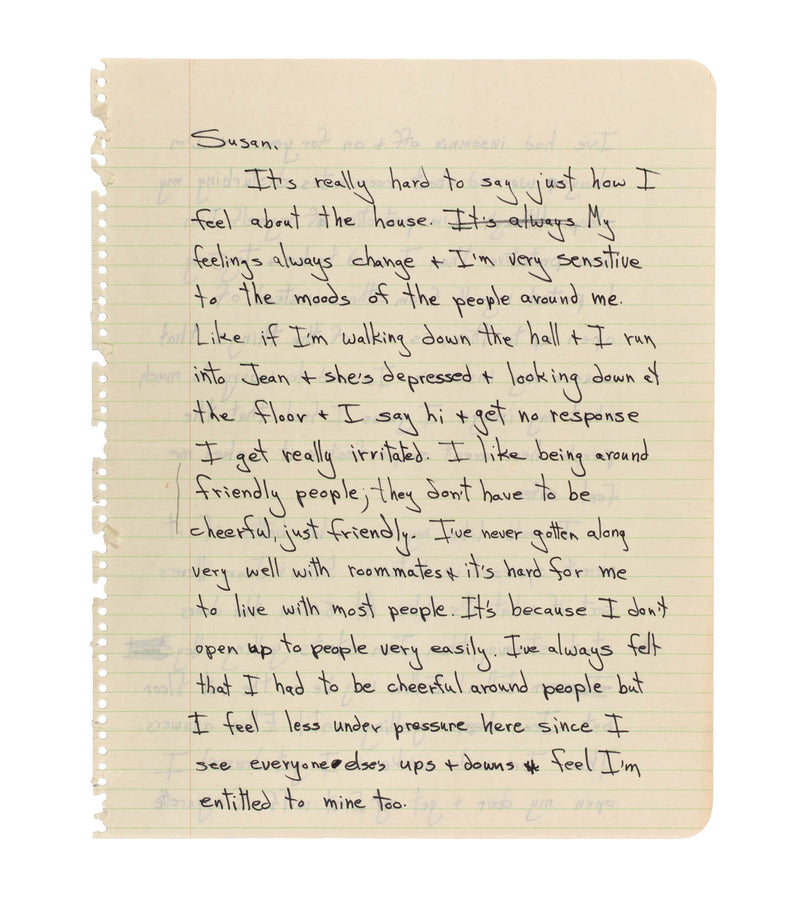 Susan,
It's really hard to say just how I
feel about the house. It's always My
feelings always change + I'm very sensitive
to the moods of the people around me.
Like if I'm walking down the hall + I run
into Jean + she's depressed + looking down at
the floor + I say hi + get no response
I get really irritated. I like being around
friendly people; they don't have to be
cheerful, just friendly. I've never gotten along
very well with roommates + it's hard for me
to live with most people. It's because I don't
open up to people very easily. I've always felt
that I had to be cheerful around people but
I feel less under pressure here since I
see everyone else's ups + downs + feel I'm
entitled to mine too.